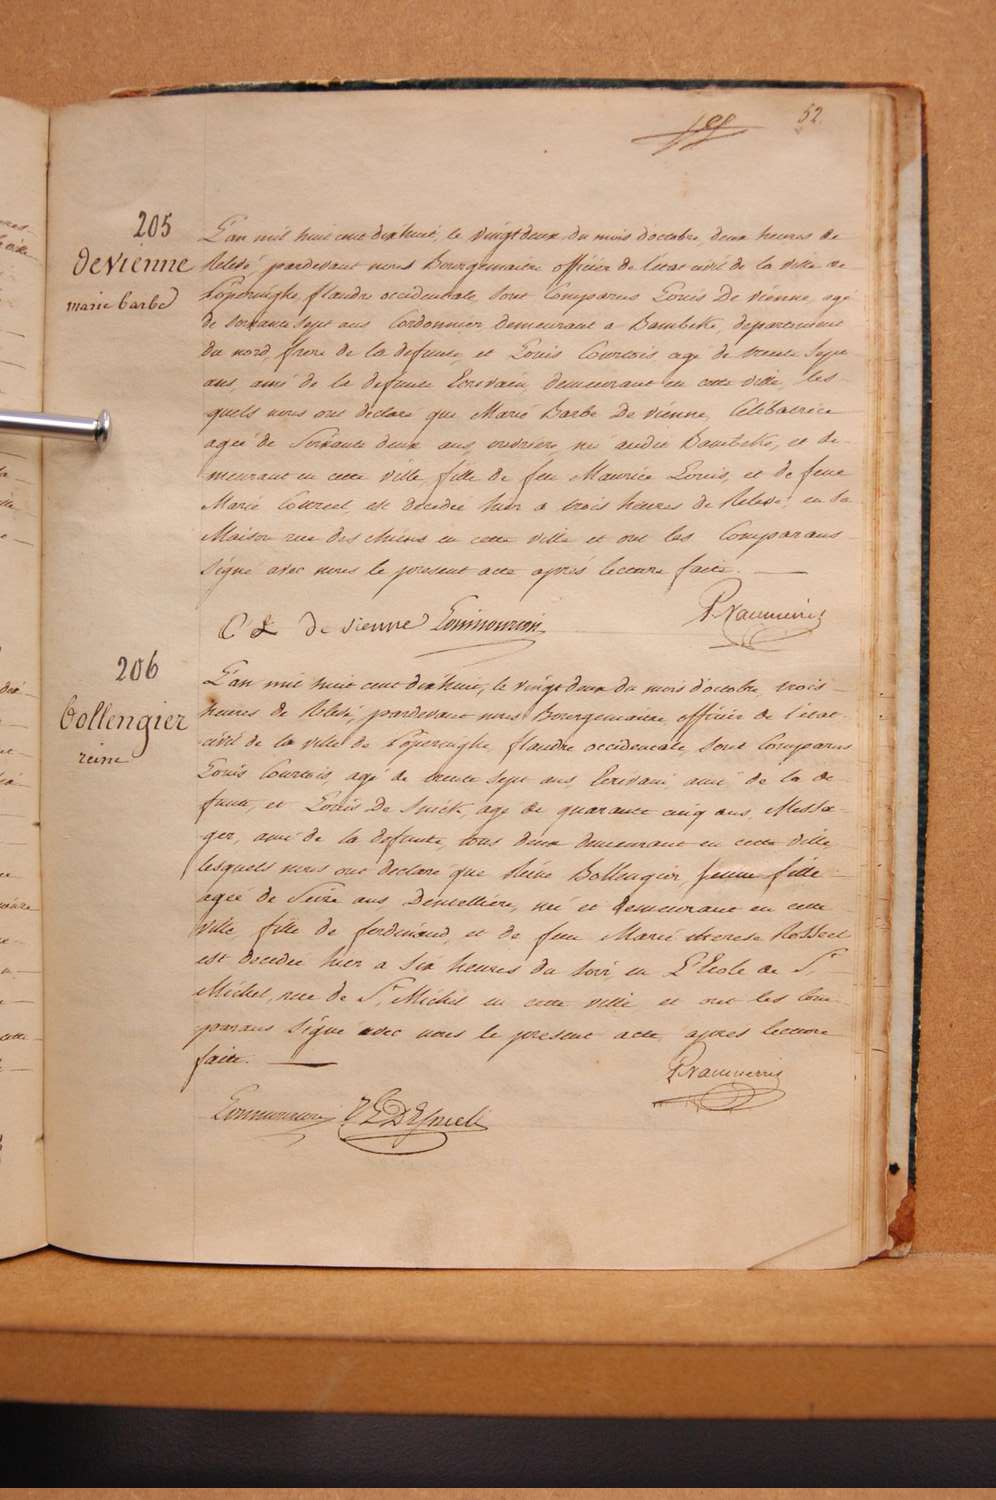 52
205
deVienne
marie barbe
L'an mil huit cent dixhuit, le vingt deux du mois d'octobre, deux heures de
Relevé, pardevant nous Bourgemaitre officier de l'état civil de la ville de
Poperinghe, flandre occidentale, sont Comparus Louis De vienne, agé
de soixante sept ans Cordonnier demeurant a Bambeke, departement
du nord, frere de la defunte, et Louis Courtois agé de trente sept
ans, ami de la defunte Ecrivain, demeurant en cette ville, les-
quels nous ont declaré que Marie Barbe De vienne, Celibatrice
ageé de Soixante deux ans, ouvriere, neé audit Bambeke, et de-
meurant en cette ville, fille de feu Maurice Louis, et de feue
Marie Cottreel, est decedeé hier a trois heures de Relevé, en sa
Maison rue des chiens en cette ville et ont les Comparans
Signé avec nous le present acte aprés lecture faite.
De vienne
206
Bollengier
reine
L'an mil huit cent dixhuit, le vingt deux du mois d'octobre, trois
heures de Relevé, pardevant nous Bourgemaitre officier de l'état
civil de la ville de Poperinghe, flandre occidentale, sont Comparus
Louis Courtois, agé de trente sept ans, Ecrivain, ami de la de-
funte, et Louis De Snick, agé de quarante cinq ans, Messa-
ger, ami de la defunte, tous deux demeurant en cette ville
lesquels nous ont declaré que Reine Bollengier, jeune fille
ageé de Seize ans, Dentelliere, neé et demeurant en cette
ville, fille de ferdinand, et de feue Marie therese Rosseel
est decedeé hier a six heures du soir, en L'Ecole de St.
Michel, rue de St. Michel en cette ville et ont les Com-
parans signé avec nous le present acte, aprés lecture
faite.